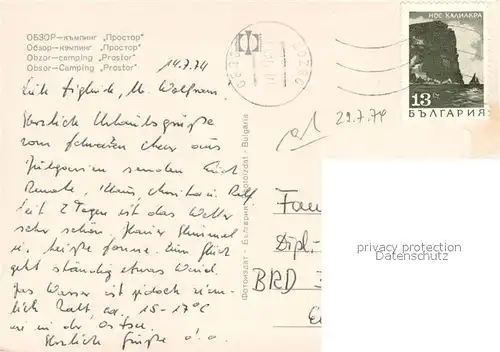 ОБЗОР – къмпинг „Простор"
Обзор–кемпинг „Простор"
Obzor–camping „Prostor"
Obsor–Camping „Prostor"
14.7.74
НОС КАЛИАКРА
13 ст
БЪЛГАРИЯ
29.7.74
Liebe Sieglinde, Wolfram.
Herzliche Urlaubsgrüße
vom Schwarzen Meer aus
Bulgarien senden Euch
Renate, Klaus, Monika u. Ralf
Seit 2 Tagen ist das Wetter
sehr schön, blauer Himmel
u. heiße Sonne. Zum Glück
geht ständig etwas Wind.
Das Wasser ist jedoch ziem-
lich kalt, ca. 15-17°C
wie in der Ostsee.
Herzliche Grüße
Фотоиздат - България Photoizdat - Bulgaria
Fam
Dipl.-
BRD
privacy protection
Datenschutz